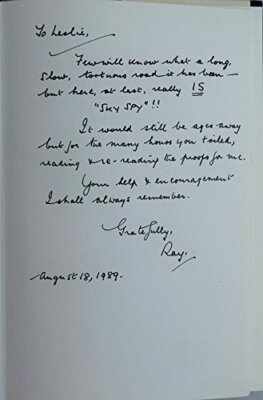 To Leslie,
Few will know what a long,
slow, tortuous road it has been –
but here, at last, really IS
"SKY SPY"!!
It would still be ages away
but for the many hours you toiled,
reading & re-reading the proofs for me.
Your help & encouragement
I shall always remember.
Gratefully,
Ray.
August 18, 1989.